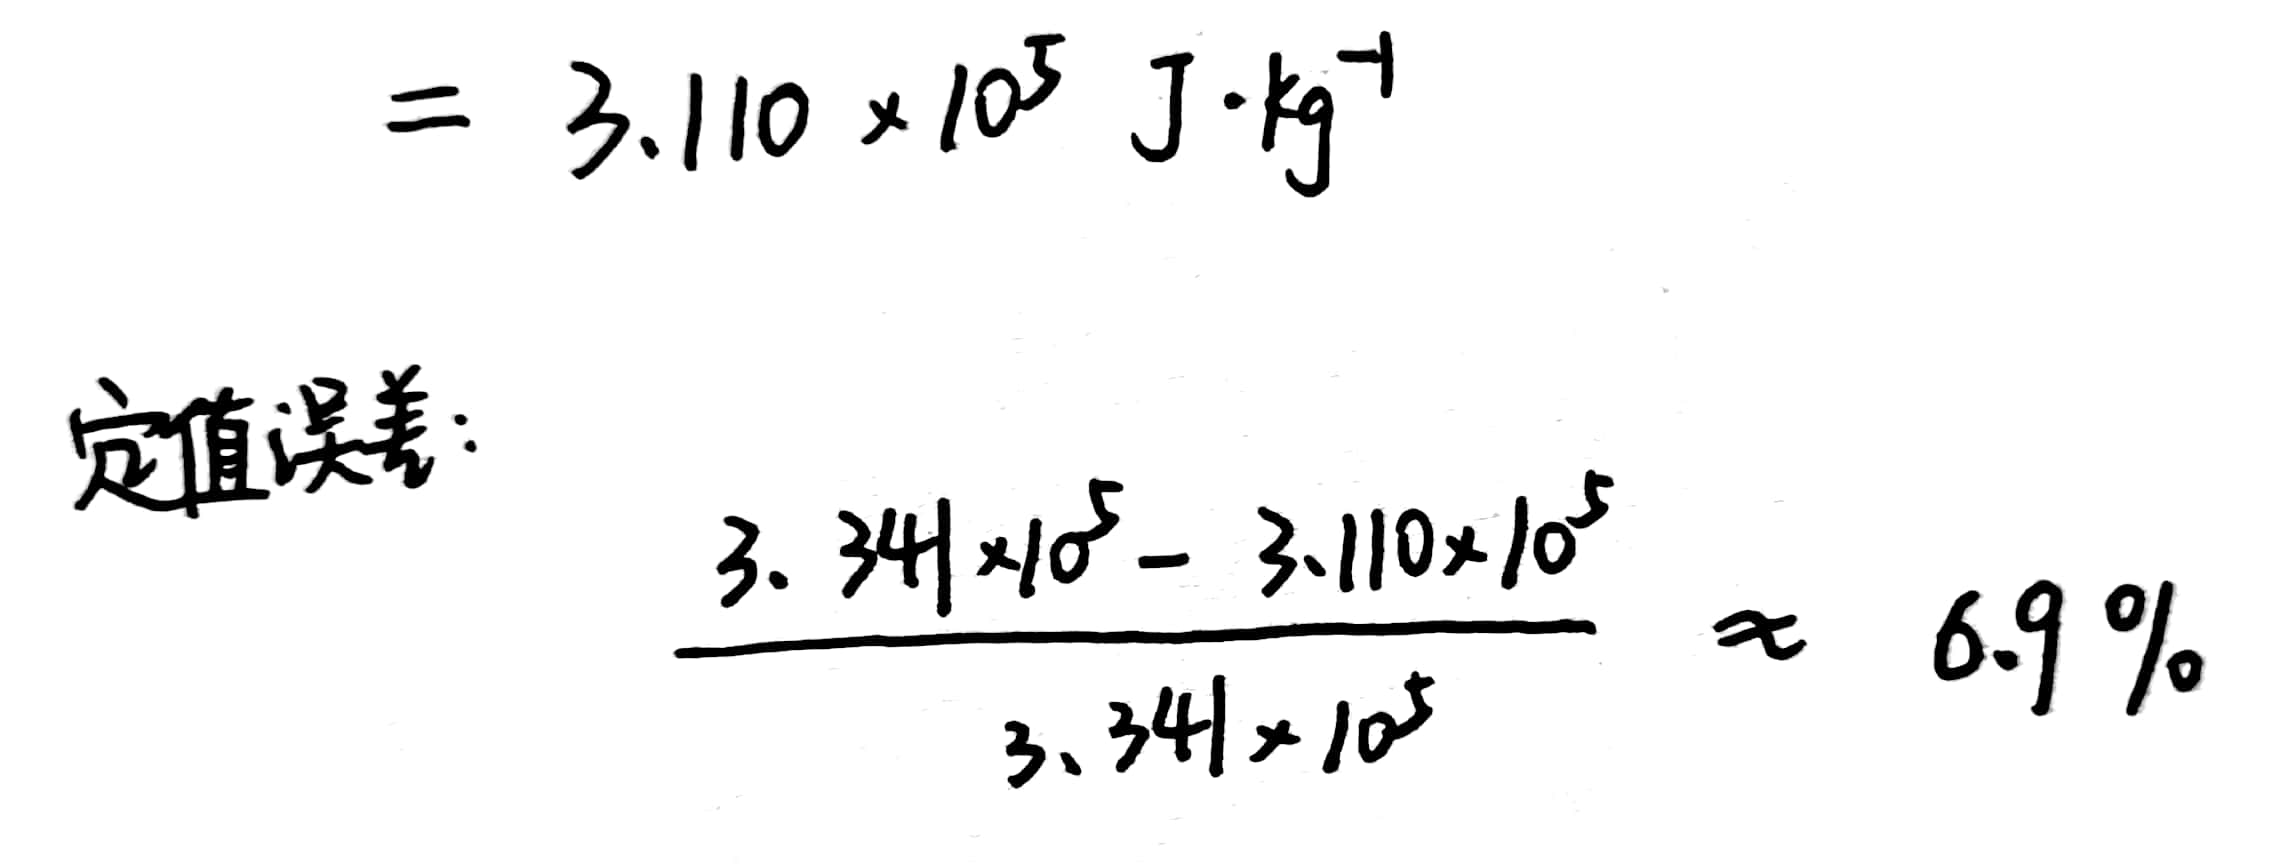 = 3.110 × 10⁵ J·kg⁻¹
定值误差:
3.341×10⁵ - 3.110×10⁵
≈ 6.9%
3.341×10⁵